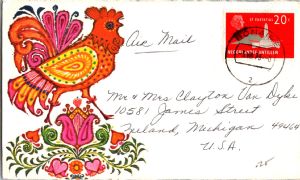 ST. EUSTATIUS 20c
NEDERLANDSE ANTILLEN
Air Mail
2
Mr & Mrs Clayton Van Dyke
10581 James Street
Zeeland, Michigan 49464
U.S.A.